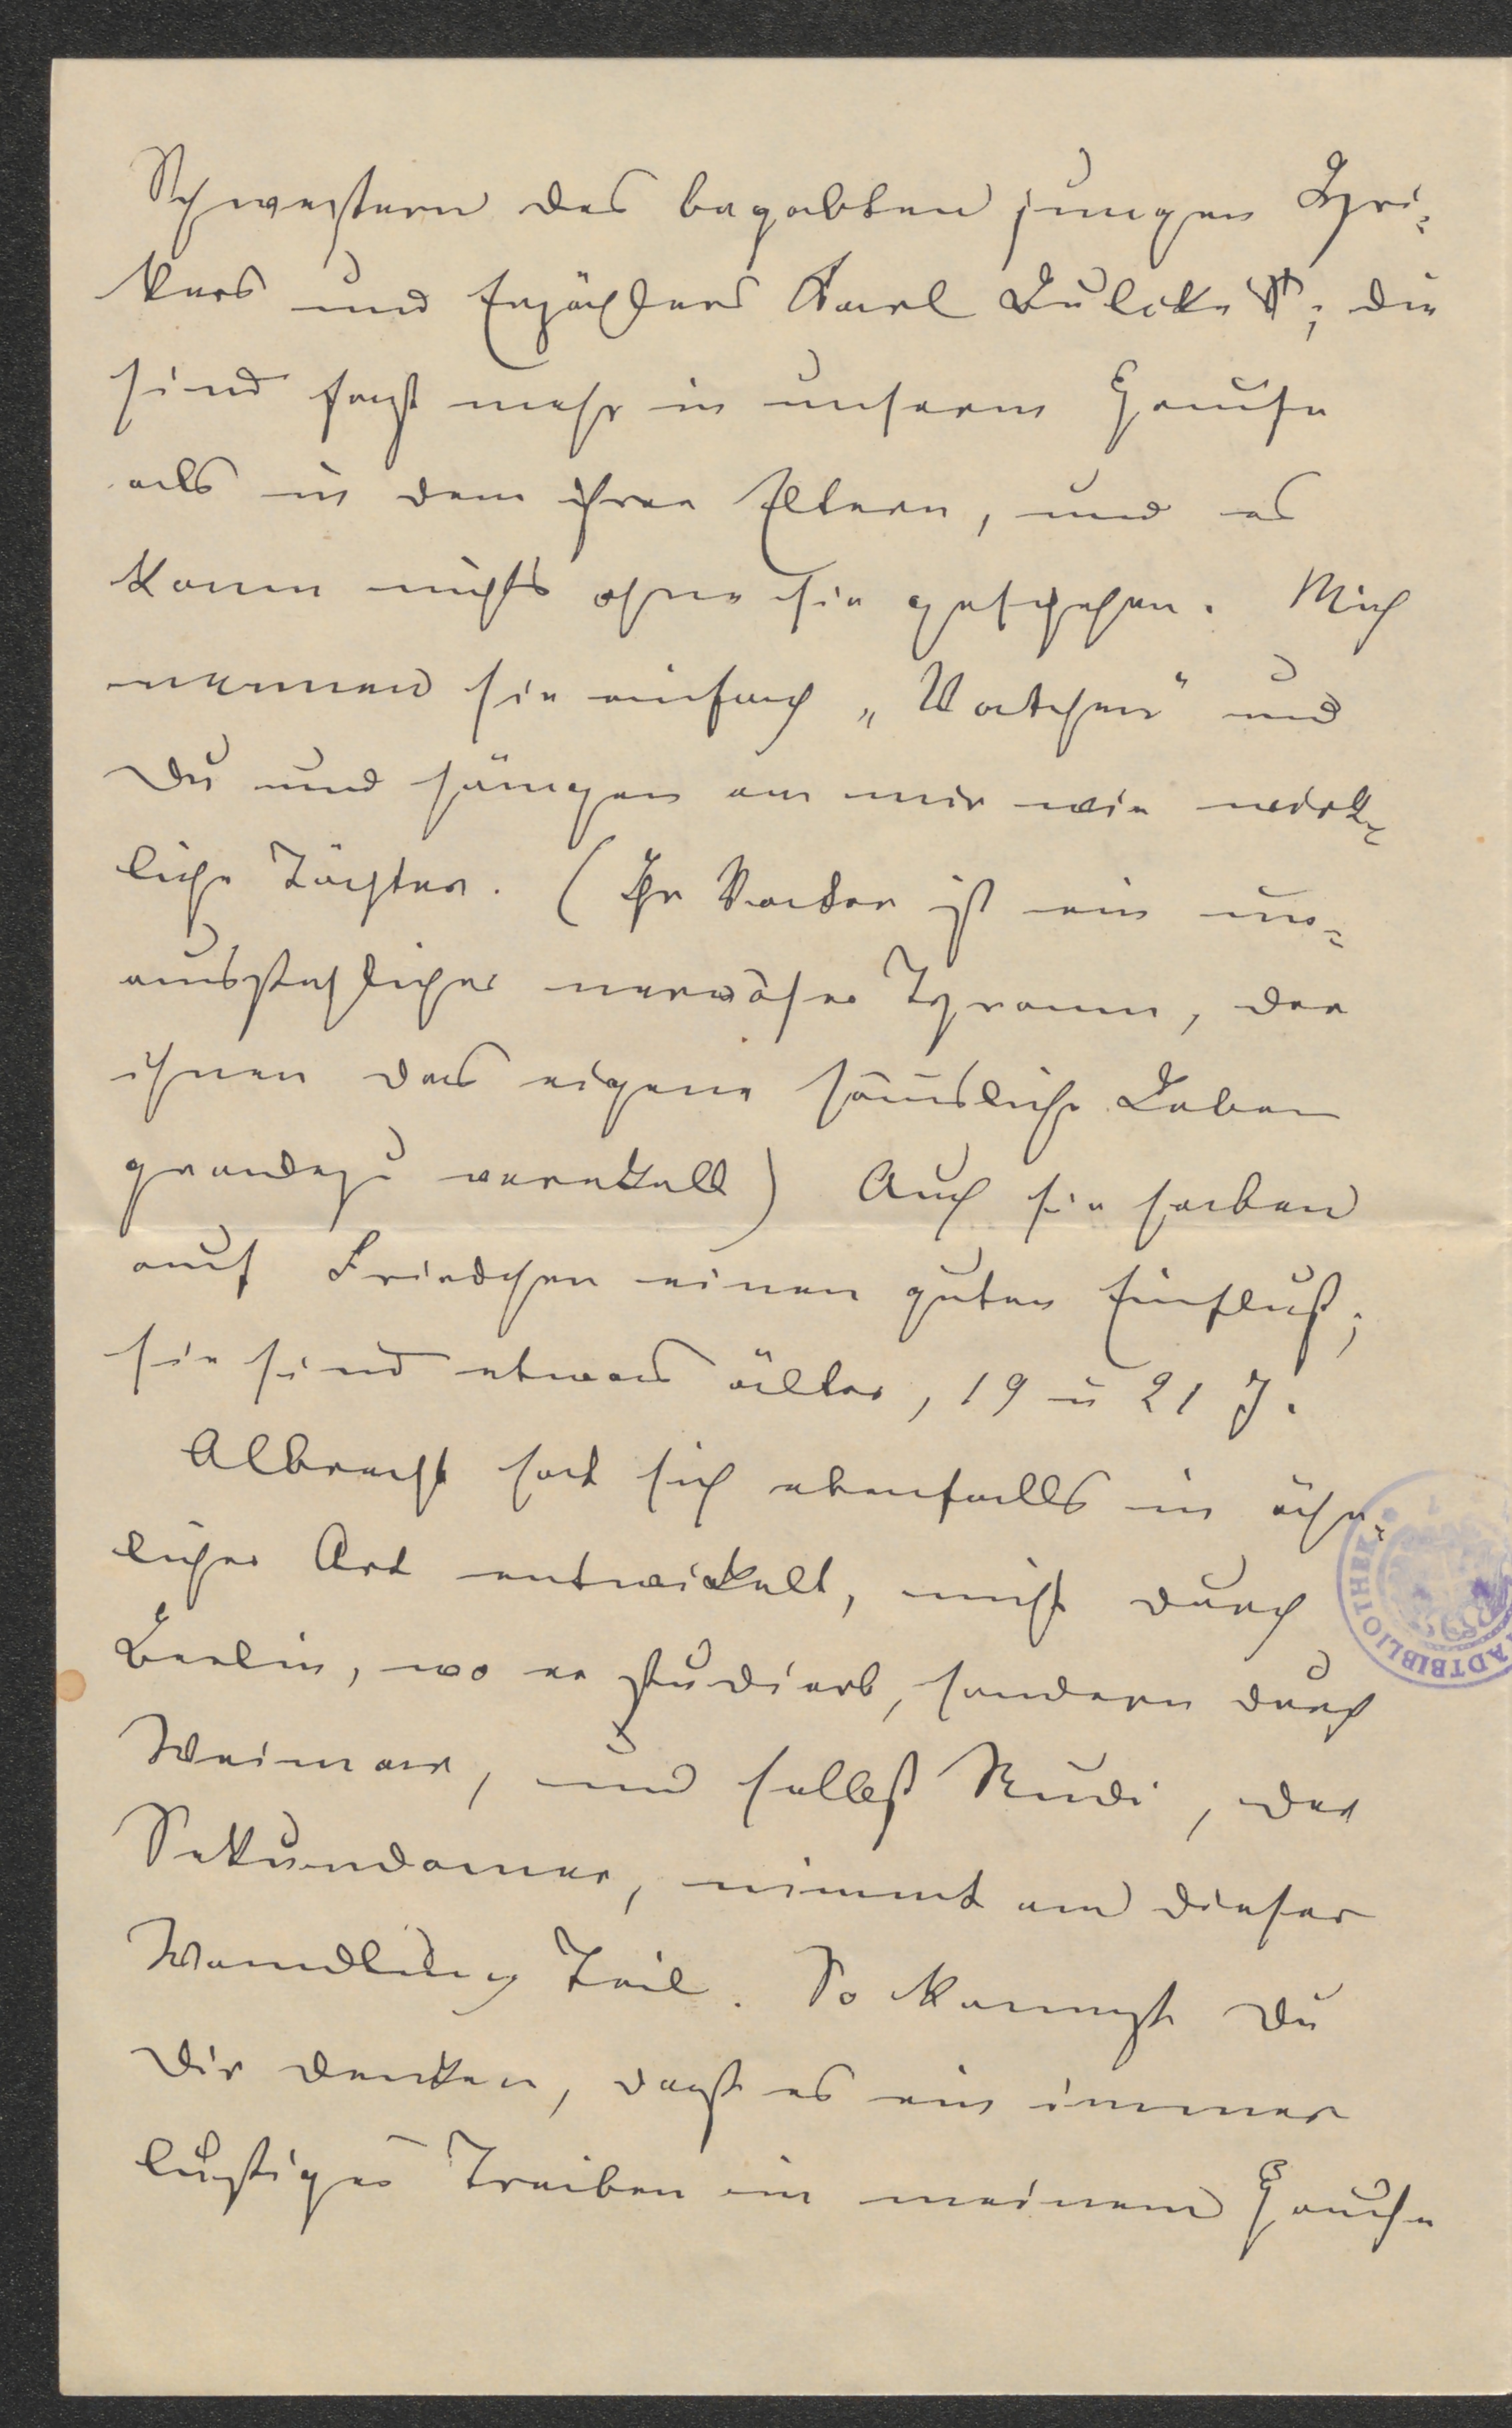 Schwestern des begabten jungen Lyri-
kers und Erzählers Karl Bulcke; die
sind fast mehr in unserm Hause
als in dem ihrer Eltern, und es
kann nichts ohne sie geschehen. Mich
nennen sie einfach „Vatchen" und
Du und hängen an mir wie wirk-
liche Töchter. (Ihr Vater ist ein un-
ausstehlicher nervöser Tyrann, der
ihnen das eigene häusliche Leben
geradezu verekelt) Auch sie haben
auf Friedchen einen guten Einfluß;
sie sind etwas älter, 19 u 21 J.
Albrecht hat sich ebenfalls in ähn-
licher Art entwickelt, nicht durch
Berlin, wo er studiert, sondern durch
Weimar, und selbst Rudi, der
Sekundaner, nimmt an dieser
Wandlung Teil. So kannst Du
Dir denken, dass es ein immer
lustiges Treiben in meinem Hause
STADTBIBLIOTHEK